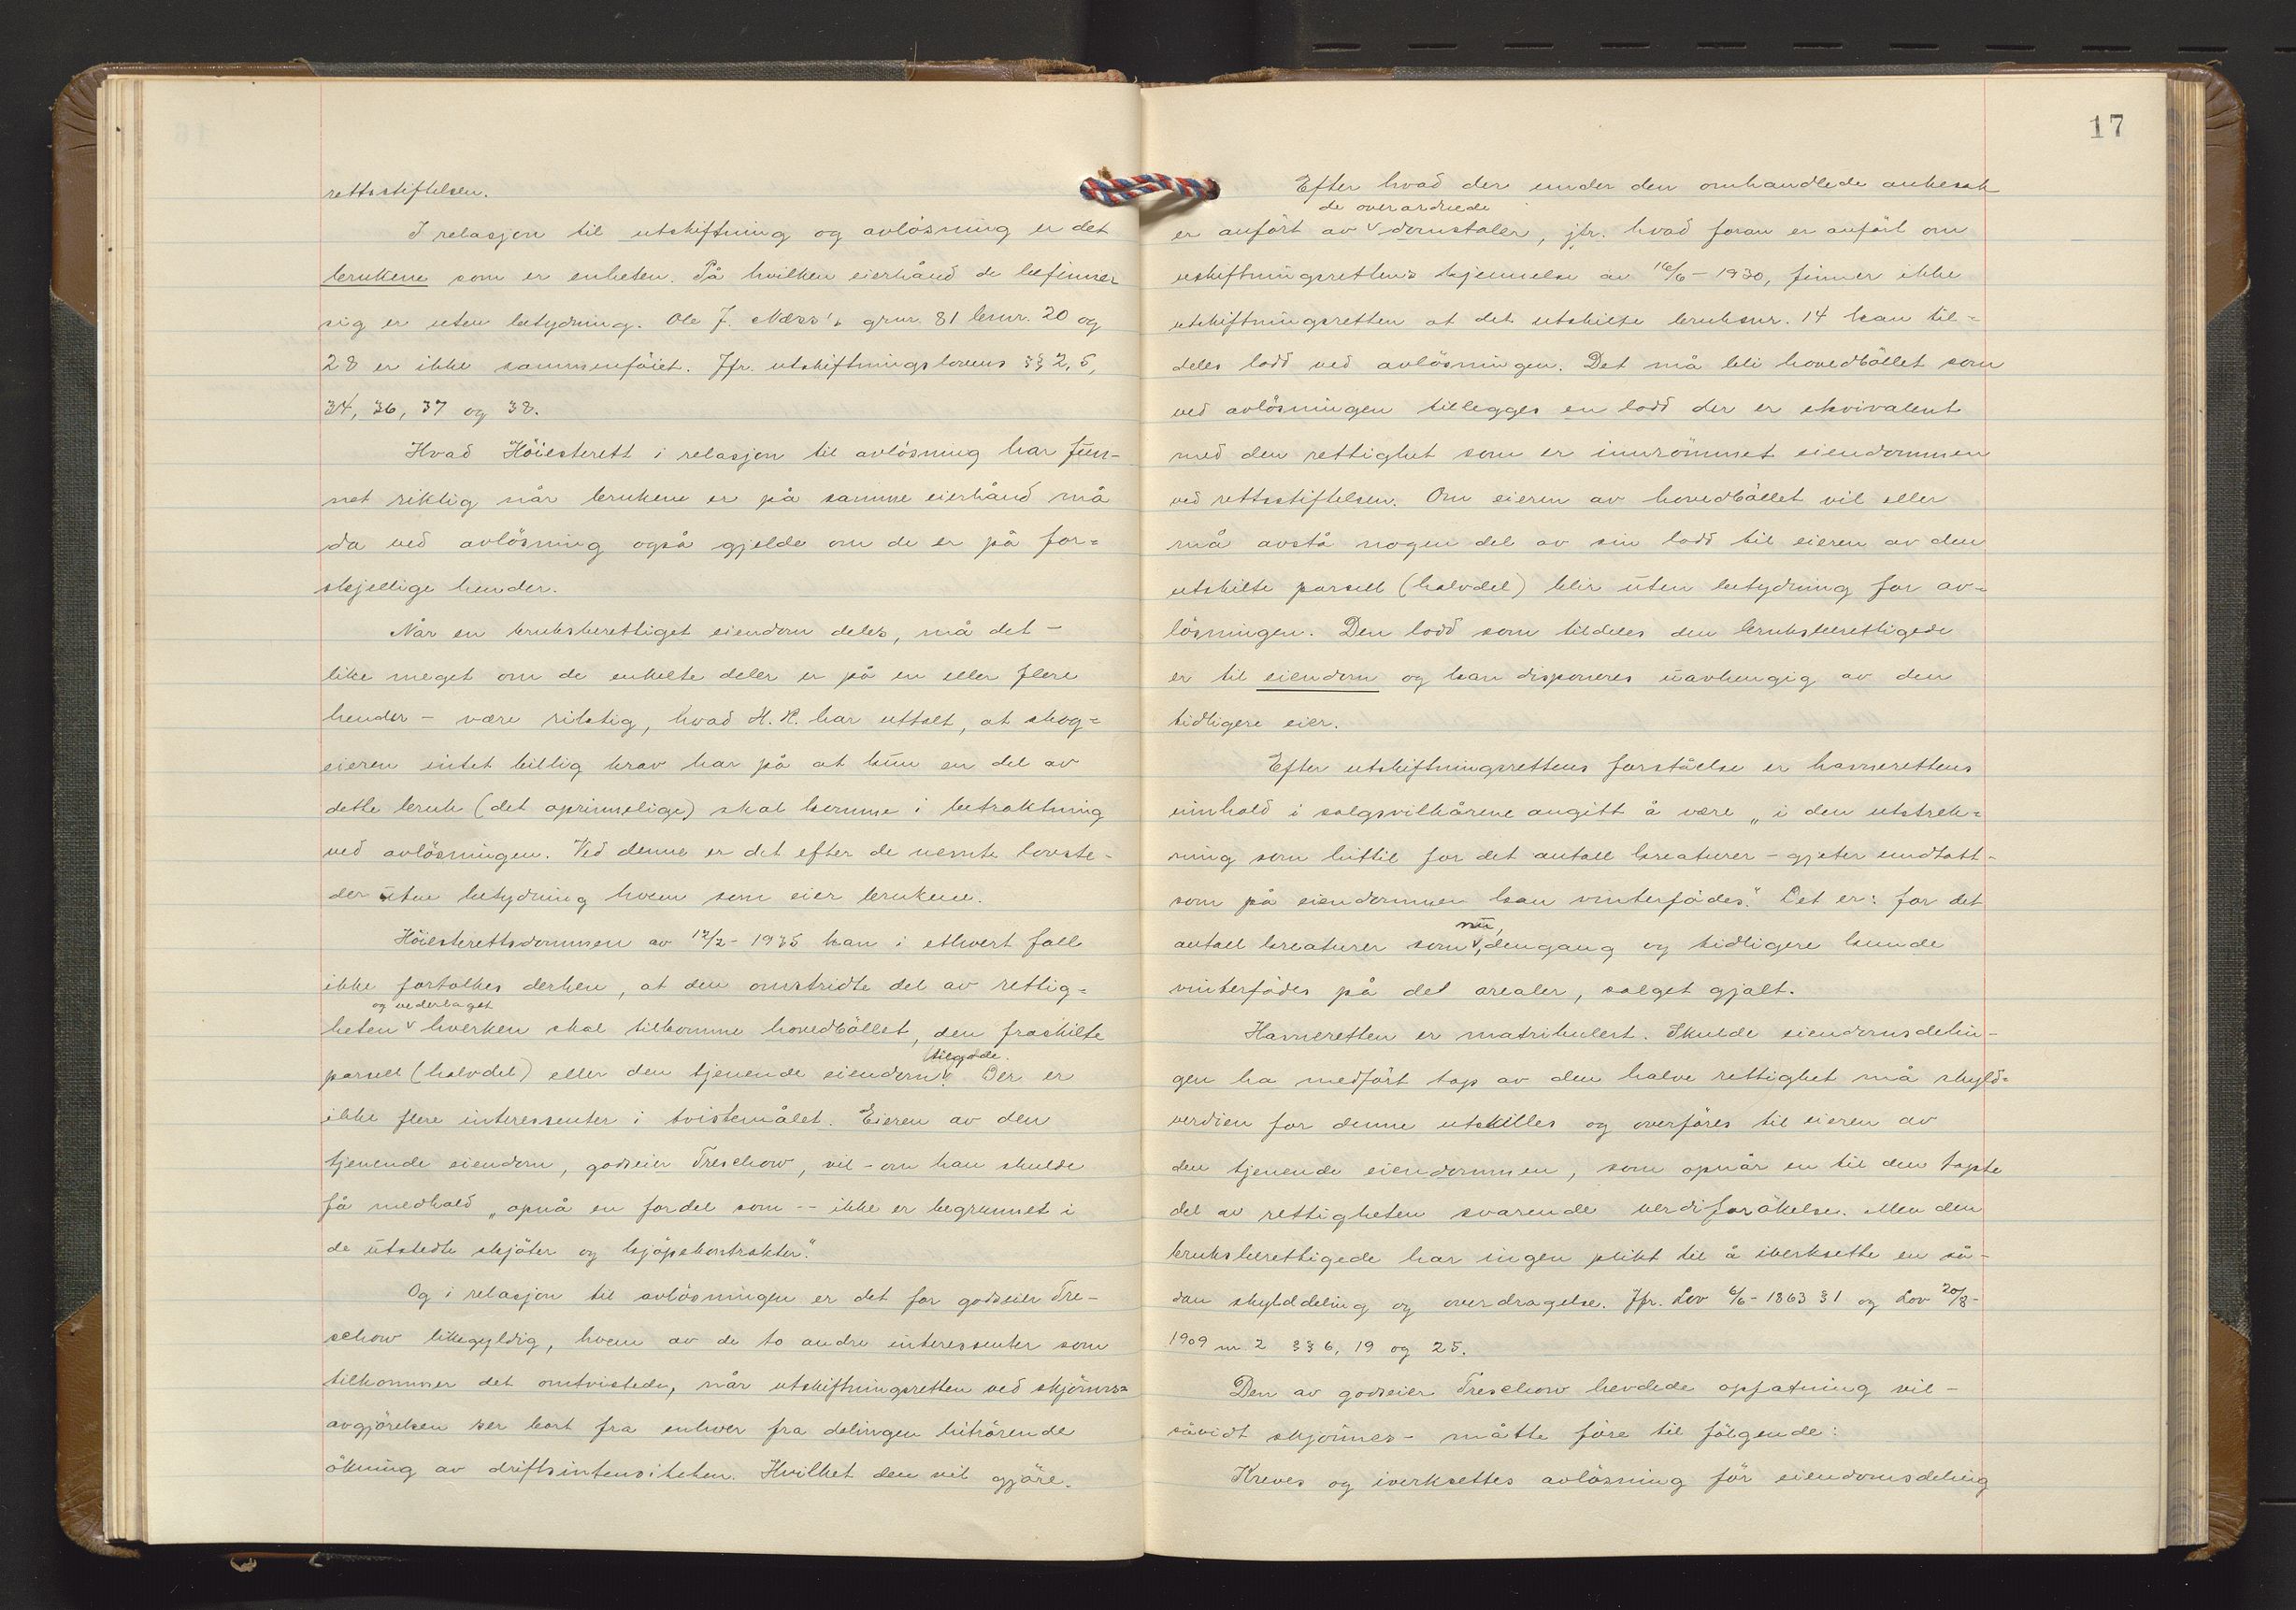 rettsstiftelsen.
I relasjon til utskiftning og avlösning er det
brukene som er enheten. På hvilken eierhånd de befinner
sig er uten betydning. Ole J. Næss's grnr. 81 brnr. 20 og
28 er ikke sammenföiet. Jfr. utskiftningslovens §§ 2, 5,
34, 36, 37 og 38.
Hvad Höiesterett i relasjon til avlösning har fun-
net riktig når brukene er på samme eierhånd må
da ved avlösning også gjelde om de er på for-
skjellige hender.
Når en bruksberettiget eiendom deles, må det -
like meget om de enkelte deler er på en eller flere
hender - være riktig, hvad H. R. har uttalt, at skog-
eieren intet billig krav har på at kun en del av
dette bruk (det oprinnelige) skal komme i betraktning
ved avlösningen. Ved denne er det efter de nevnte lovste-
der uten betydning hvem som eier brukene.
Höiesterettsdommen av 12/2 - 1935 kan i ethvert fall
ikke fortolkes derhen, at den omstridte del av rettig-
og vederlaget
heten hverken skal tilkomme hovedbållet, den fraskilte
tilgode.
parsell (halvdel) eller den tjenende eiendom. Der er
ikke flere interessenter i tvistemålet. Eieren av den
tjenende eiendom, godseier Treschow, vil - om han skulde
få medhold „opnå en fordel som -- ikke er begrunnet i
de utstedte skjöter og kjöpekontrakter."
Og i relasjon til avlösningen er det for godseier Tre-
schow likegyldig, hvem av de to andre interessenter som
tilkommer det omtvistede, når utskiftningsretten ved skjönns-
avgjörelsen ser bort fra enhver fra delingen hitrörende
ökning av driftsintensiteten. Hvilket den vil gjöre.
17
Efter hvad der under den omhandlede ankesak
de overordnede
er anfört av domstoler, jfr. hvad foran er anfört om
utskiftningsrettens kjennelse av 16/6 - 1930, finner ikke
utskiftningsretten at det utskilte bruksnr. 14 kan til-
deles lodd ved avlösningen. Det må bli hovedbållet som
ved avlösningen tillegges en lodd der er ekvivalent
med den rettighet som er innrömmet eiendommen
ved rettsstiftelsen. Om eieren av hovedbållet vil eller
må avstå nogen del av sin lodd til eieren av den
utskilte parsell (halvdel) blir uten betydning for av-
lösningen. Den lodd som tildeles den bruksberettigede
er til eiendom og kan disponeres uavhengig av den
tidligere eier.
Efter utskiftningsrettens forståelse er havnerettens
innhold i salgsvilkårene angitt å være „i den utstrek-
ning som hittil for det antall kreaturer - gjeter undtatt -
som på eiendommen kan vinterfödes." Det er: for det
nu,
antall kreaturer som, dengang og tidligere kunde
vinterfödes på det arealer, salget gjalt.
Havneretten er matrikulert. Skulde eiendomsdelin-
gen ha medfört tap av den halve rettighet må skyld-
verdien for denne utskilles og overföres til eieren av
den tjenende eiendommen, som opnår en til den tapte
del av rettigheten svarende verdiforökelse. Men den
bruksberettigede har ingen plikt til å iverksette en så-
dan skylddeling og overdragelse. Jfr. Lov 6/6 - 1863 § 1 og Lov 20/8 -
1909 nr. 2 §§ 6, 19 og 25.
Den av godseier Treschow hevdede opfatning vil -
såvidt skjönnes - måtte före til fölgende:
Kreves og iverksettes avlösning för eiendomsdeling